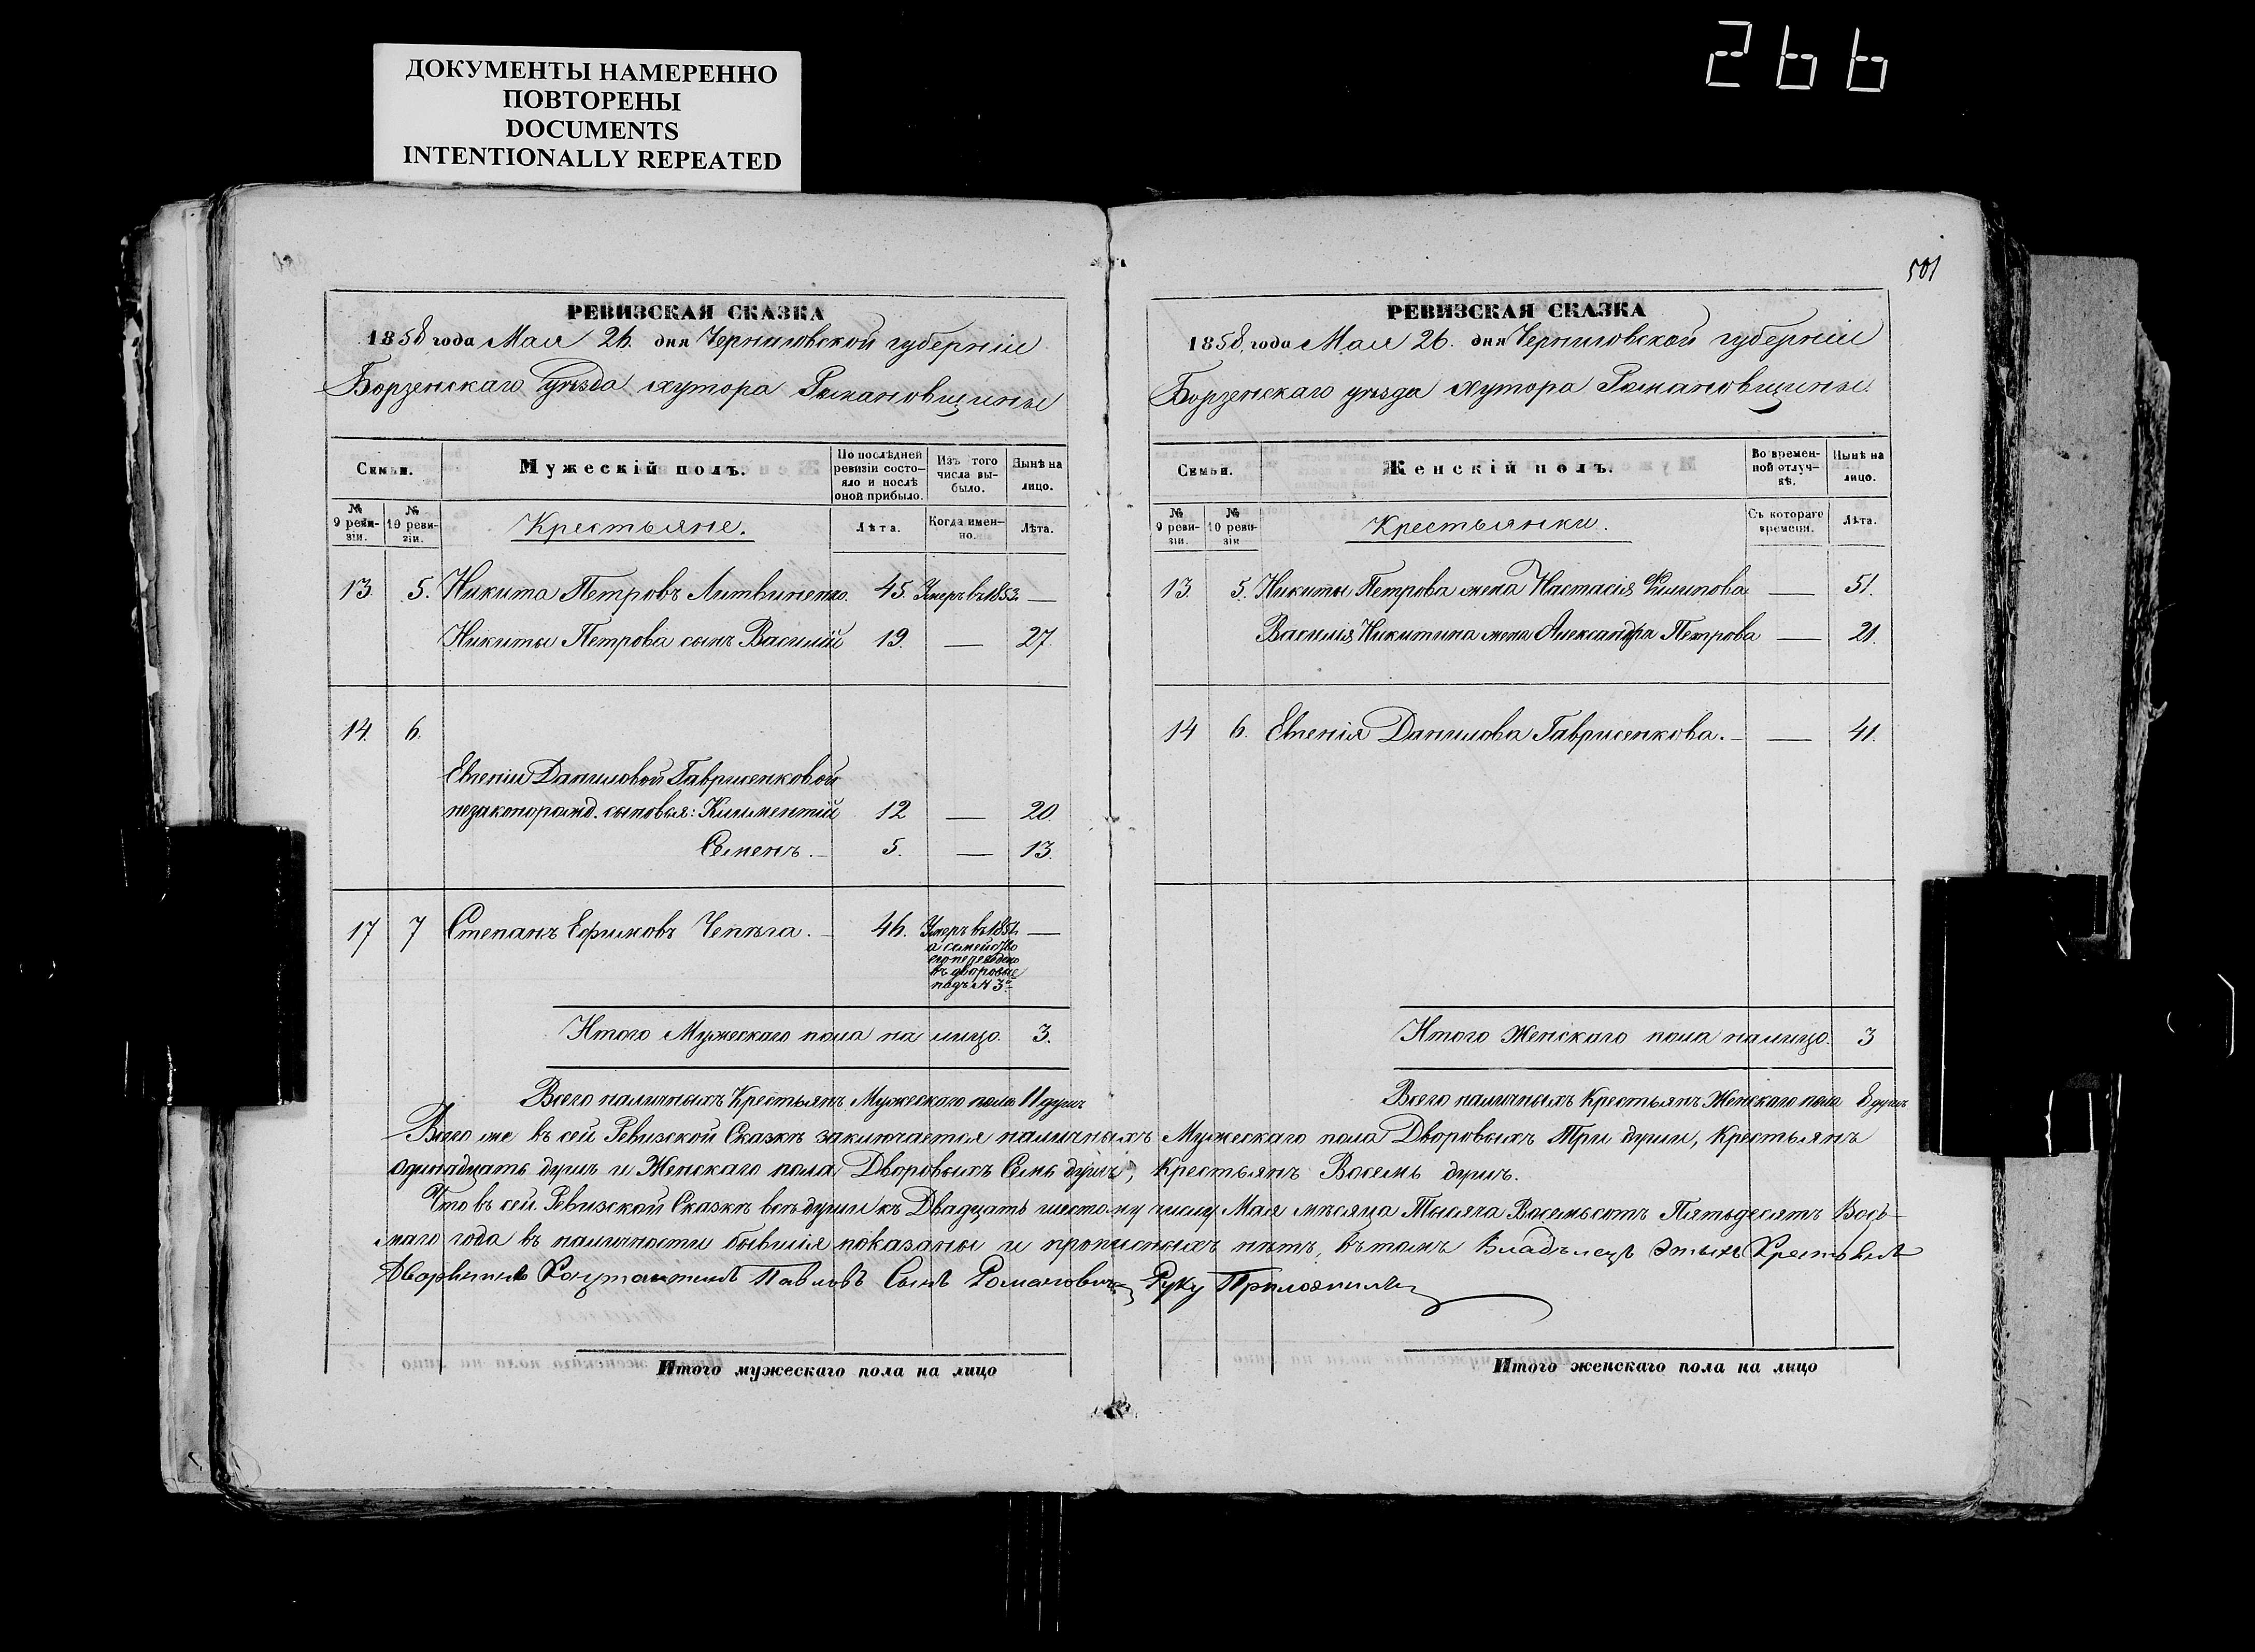 266
ДОКУМЕНТЫ НАМЕРЕННО
ПОВТОРЕНЫ
DOCUMENTS
INTENTIONALLY REPEATED
РЕВИЗСКАЯ СКАЗКА
1858 года Мая 26. дня Черниговской губерніи
Борзенскаго уѣзда хутора Романовщины
Семьи.
Мужескій полъ.
По послѣдней ревизіи состояло и послѣ оной прибыло.
Изъ того числа выбыло.
Нынѣ на лицо.
№ 9 ревизіи.
№ 10 ревизіи.
Крестьяне.
Лѣта.
Когда именно.
Лѣта.
13. 5. Никита Петровъ Литвиненко. 45. Умеръ въ 1853. —
Никиты Петрова сынъ Василій 19. — 27.
14. 6.
Евгеніи Даниловой Гаврисенковой
незаконорожд. сыновья: Климентій 12 — 20.
Семенъ. — 5. — 13.
17 7 Степанъ Ефимовъ Чепѣга. — 46. Умеръ въ 1851. —
а семейство
его переведено
въ дворовые
подъ № 3
Итого Мужескаго пола на лицо. 3.
Всего наличныхъ Крестьянъ Мужескаго пола 11 душъ
501
РЕВИЗСКАЯ СКАЗКА
1858, года Мая 26. дня Черниговской губерніи
Борзенскаго уѣзда хутора Романовщины.
Семьи.
Женскій полъ.
Во временной отлучкѣ.
Нынѣ на лицо.
№ 9 ревизіи.
№ 10 ревизіи
Крестьянки.
Съ котораго времени.
Лѣта.
13. 5. Никиты Петрова жена Настасія Филипова — 51.
Василія Никитина жена Александра Петрова — 21.
14 6. Евгенія Данилова Гаврисенкова. — — 41.
Итого Женскаго пола на лицо. 3
Всего наличныхъ Крестьянъ Женскаго пола 8 душъ
Всего же въ сей Ревизской Сказкѣ заключается наличныхъ Мужескаго пола Дворовыхъ Три души, Крестьянъ
одинадцать душъ и Женскаго пола Дворовыхъ Семь душъ, Крестьянъ Восемь душъ.
Что въ сей Ревизской Сказкѣ всѣ души къ Двадцать шестому числу Мая мѣсяца Тысяча Восемьсотъ Пятьдесятъ Вось-
маго года въ наличности бывшія показаны и прописныхъ нѣтъ, въ томъ Владѣлецъ этыхъ Крестьянъ
Дворянинъ Константинъ Павловъ Сынъ Романовичъ Руку Приложилъ
Итого мужескаго пола на лицо
Итого женскаго пола на лицо